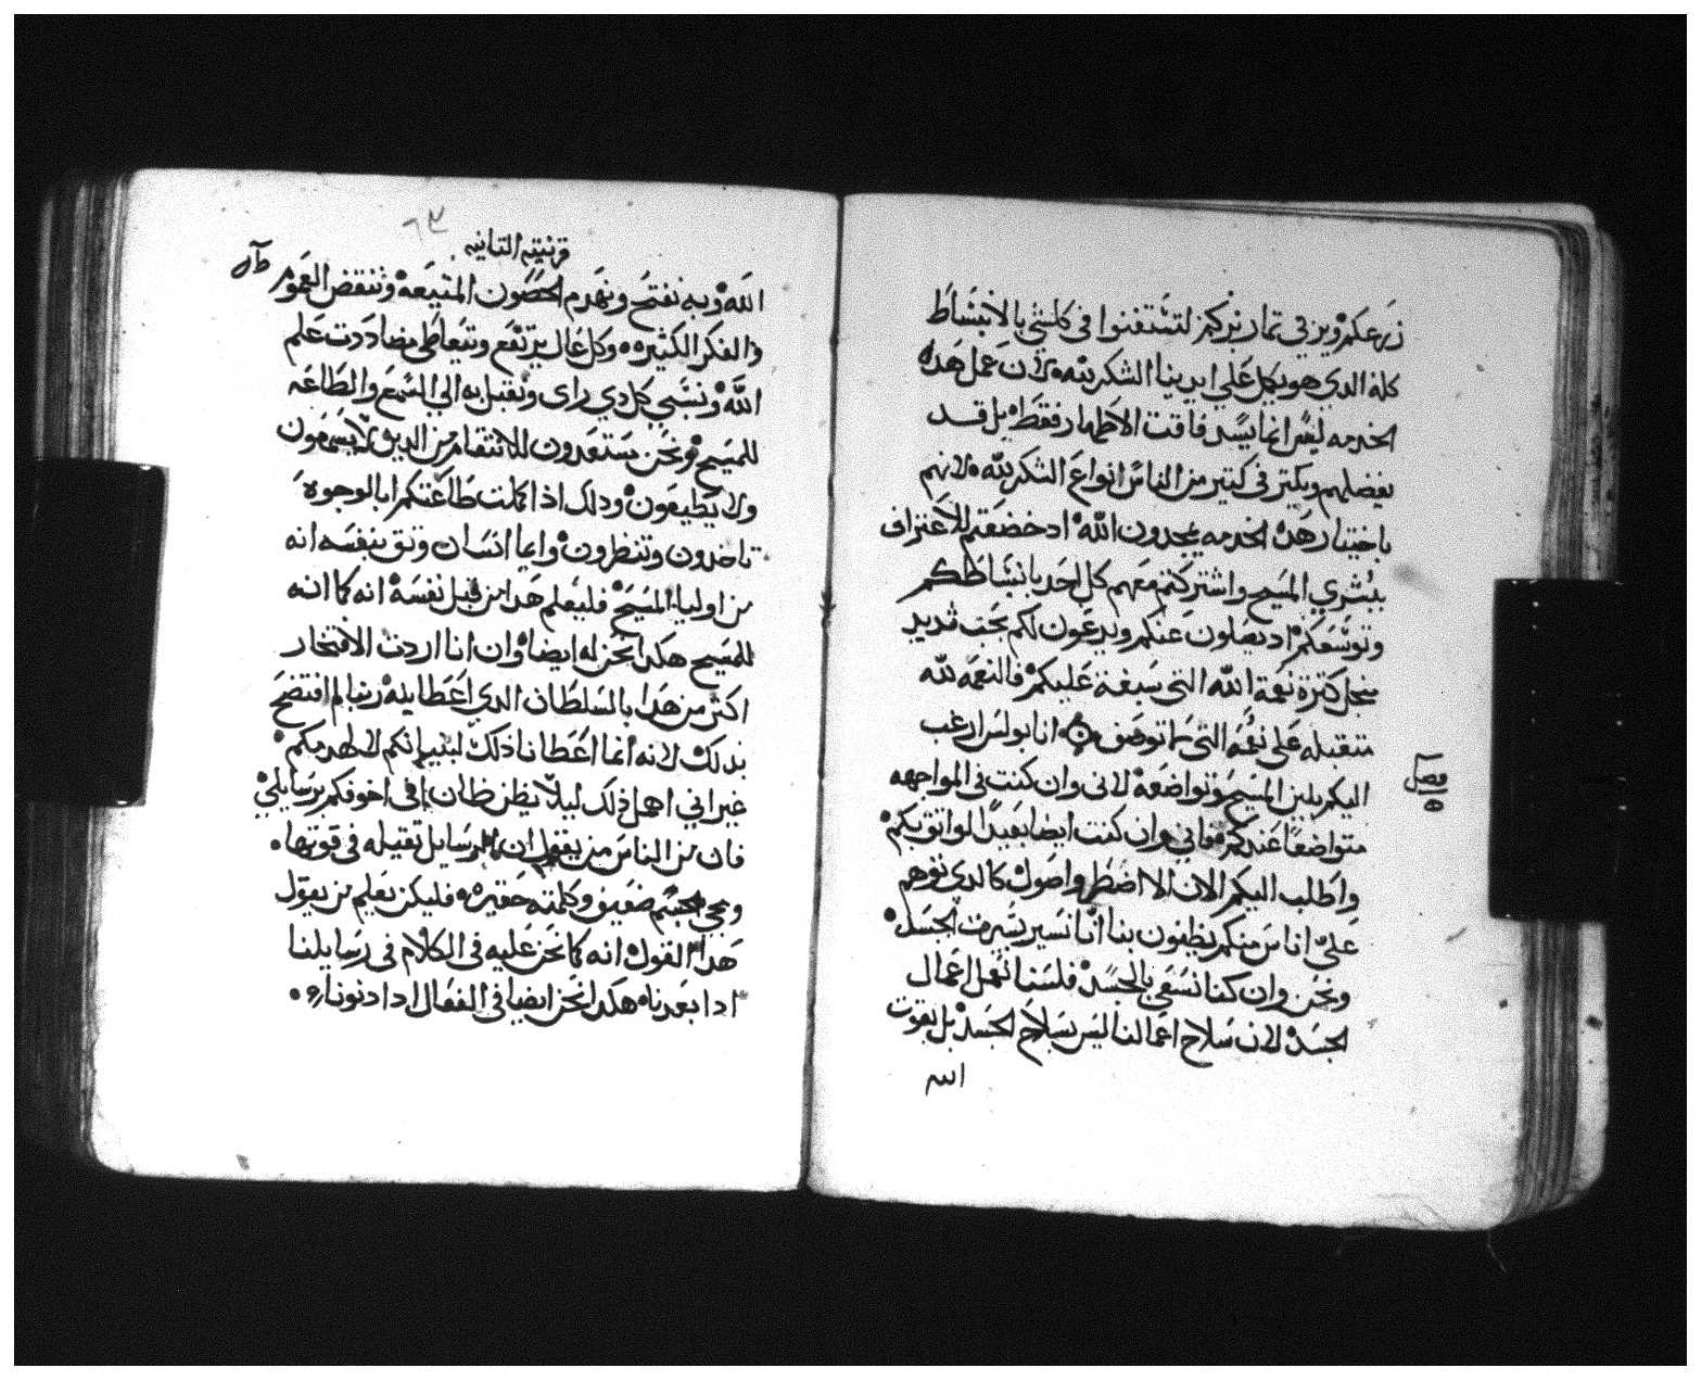 زرعكم ويزيد في تمار بركم لتستغنوا في كلشي بالانبشاط
كله الدي هو يكمل علي ايدينا الشكر لله لان عمل هده
الخدمه ليس انما يسد فاقت الاطهار فقط بل قد
يفضلهم ويكتر في كتير من الناس انواع الشكر لله لانهم
باختبار هده الخدمه يمجدون الله اد خضعتم للاعتراف
ببشري المسيح واشتركتم معهم كل احد بانبشاطكم
وتوسعكم اد يصلون عنكم ويدعون لكم بحب شديد
منجل كترة نعمة الله التي سبغة عليكم فالنعمه لله
متقبله علي نعمه التي ما توصف انا بولس ارغب
فصل
اليكم بلين المسيح وتواضعه لاني وان كنت في المواجهه
متواضعا عندكم فاني وان كنت ايضا بعيدا لواتق بكم
واطلب اليكم الان الا اضطر واصول كالدي توهم
علي اناس منكم يظنون بنا انا نسير بسيرت الجسد
ونحن وان كنا نسعي بالجسد فلسنا نعمل اعمال
الجسد لان سلاح اعمالنا ليس بسلاح الجسد بل بقوت
الله
٦٣
قرنتيه التانيه
الله وبه نفتح ونهدم الحصون المنيعه وننقض الهموم
والفكر الكتيره وكل عال يرتفع ويتعاطي مضاددت علم
الله ونسبي كل دي راي ونقبل به الي السمع والطاعه
للمسيح ونحن مستعدون للانتقام من الدين لا يسمعون
ولا يطيعون ودلك اذا كملت طاعتكم ابالوجوه
تاخدون وتنظرون وايما انسان وتق بنفسه انه
من اوليا المسيح فليعلم هدا من قبل نفسه انه كما انه
للمسيح هكدا نحن له ايضا وان انا اردت الافتخار
اكتر من هدا بالسلطان الدي اعطاينه ربنا لم افتضح
بدلك لانه انما اعطانا ذلك لبنيانكم لا لهدمكم
غير اني اهمل ذلك ليلا يظن ظان اني اخوفكم برسايلي
فان من الناس من يقول ان الرسايل تقيله في قوتها
ومجي الجسم ضعيف وكلمته حقيره فليكن يعلم من يقول
هدا القول انه كما نحن عليه في الكلام في رسايلنا
ادا بعدنا هكدا نحن ايضا في الفعال ادا دنونا